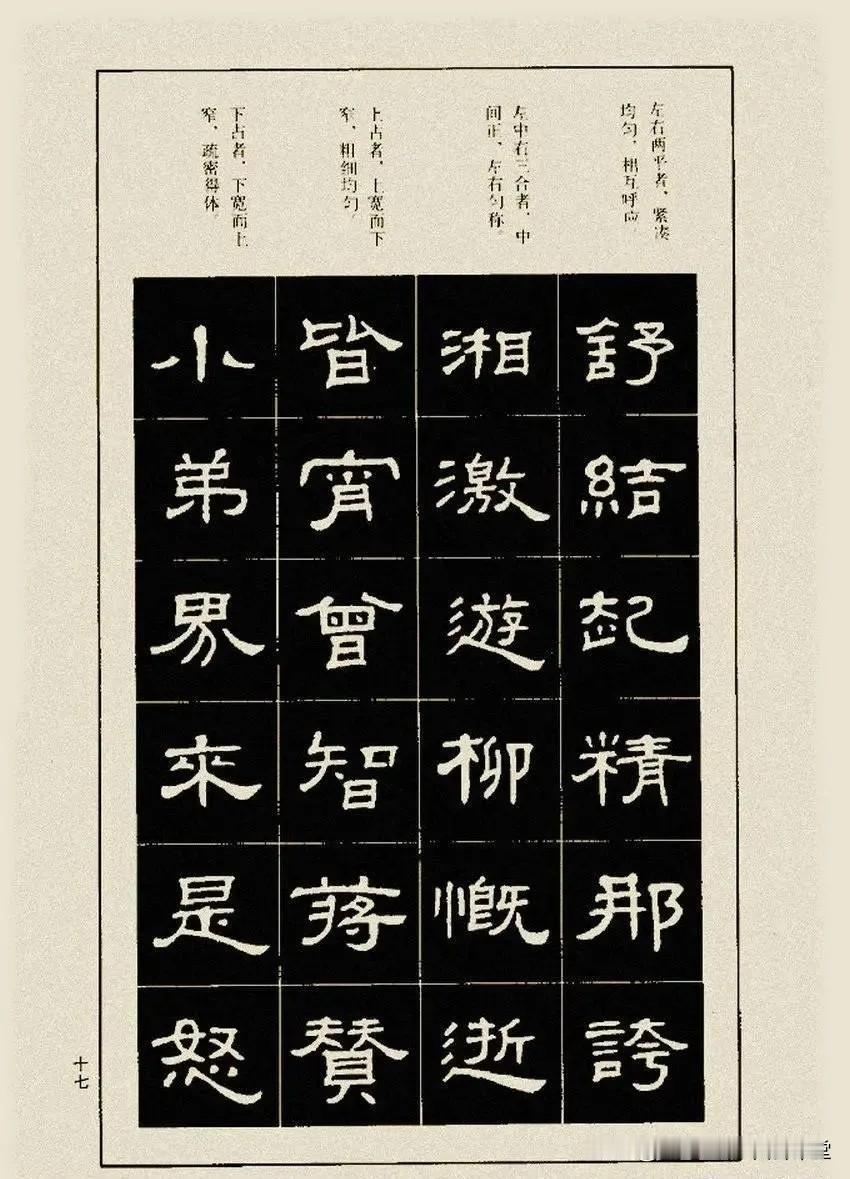 左右两平者，紧凑
均匀，相互呼应
左中右三合者，中
间正、左右匀称。
上占者，上宽而下
窄，粗细均匀。
下占者，下宽而上
窄，疏密得体。
舒結起精那誇
湘激遊柳慨逝
皆宵曾智蒋賛
小弟界來是怒
十七